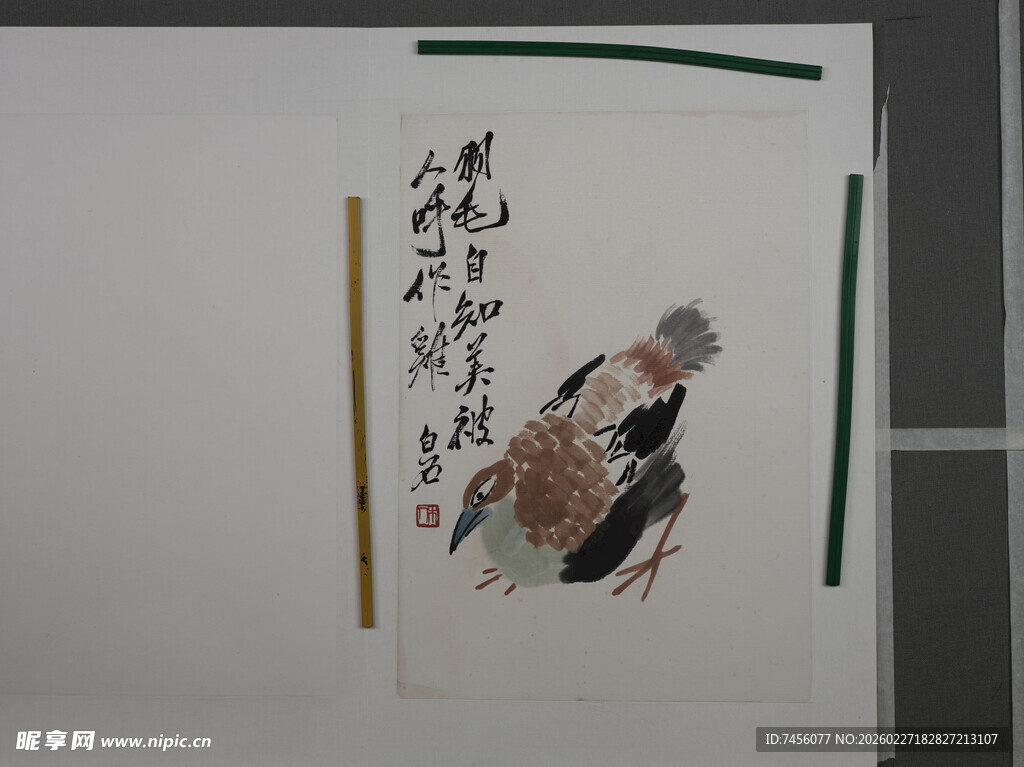 羽毛自知美被
人呼作雞
白石
昵享网 www.nipic.cn
ID:7456077 NO:20260227182827213107